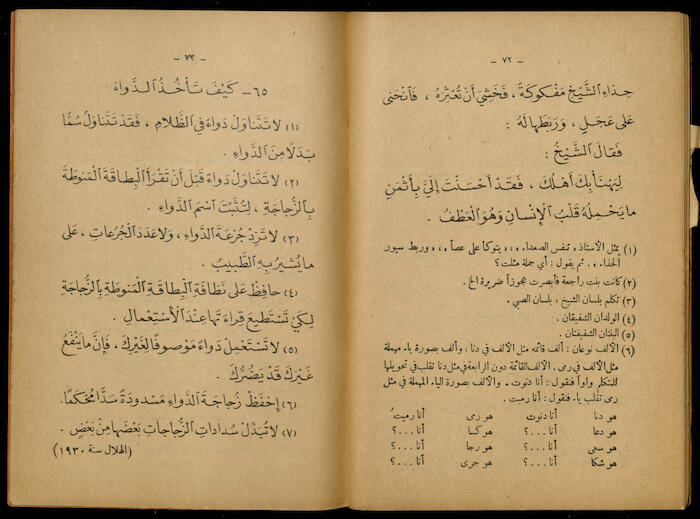 - ٧٢ -
حِذاءِ الشَّيْخِ مَفْكوكَةً ، فَخَشِيَ أَنْ تُعْثِرَهُ ، فَٱنْحَنى
عَلى عَجَلٍ ، وَرَبَطَها لَهُ :
فَقالَ الشَّيْخُ :
لِيَهْنَأْ بِكَ أَهْلُكَ ، فَقَدْ أَحْسَنْتَ إِلَيَّ بِأَثْمَنِ
ما يَحْمِلُهُ قَلْبُ الْإِنْسانِ وَهُوَ الْعَطْفُ .
(١) يمثل الأستاذ ,, تنفس الصعدا. ,, ,, يتوكأ على عصاً ,, ,, وربط سيور
الحذا. ,, ثم يقول : أي جملة مثلت ؟
(٢) كانت بنت راجعة فأبصرت عجوزاً ضريرة الخ .
(٣) تكلم بلسان الشيخ ، بلسان الصبي .
(٤) الولدان الشفيقان .
(٥) البنتان الشفيقتان .
(٦) الألف نوعان : ألف قائمه مثل الألف في دنا ، وألف بصورة يا. مهملة
مثل الألف في رمى . الألف القائمة دون الرابعة في مثل دنا تقلب في تحويلها
للمتكلم واواً فنقول : أنا دنوت . والألف بصورة اليا. المهملة في مثل
رمى تقلب يا. فنقول : أنا رميت .
هو دنا أنا دنوت هو رمى أنا رميت
هو دعا أنا . . . ؟ هو كسا أنا . . . ؟
هو سعى أنا . . . ؟ هو رجا أنا . . . ؟
هو شكا أنا . . . ؟ هو جرى أنا . . . ؟
- ٧٣ -
٦٥- كَيْفَ تَأْخُذُ الدَّواءَ
(١) لا تَتَناوَلْ دَواءً في الظَّلامِ ، فَقَدْ تَتَناوَلُ سُمًّا
بَدَلًا مِنَ الدَّواءِ .
(٢) لا تَتَناوَلْ دَواءً قَبْلَ أَنْ تَقْرَأَ الْبِطاقَةَ الْمَنوطَةَ
بِالزُّجاجَةِ ، لِتُثْبِتَ اسْمَ الدَّواءِ .
(٣) لا تَزِدْ جُرْعَةَ الدَّواءِ ، وَلا عَدَدَ الْجُرُعاتِ ، عَلى
ما يُشيرُ بِهِ الطَّبيبُ .
(٤) حافِظْ عَلى نَظافَةِ الْبِطاقَةِ الْمَنوطَةِ بِالزُّجاجَةِ
لِكَيْ تَسْتَطيعَ قِراءَتَها عِنْدَ الْاسْتِعْمالِ .
(٥) لا تَسْتَعْمِلْ دَواءً مَوْصوفًا لِغَيْرِكَ ، فَإِنَّ ما يَنْفَعُ
غَيْرَكَ قَدْ يَضُرُّكَ .
(٦) إِحْفَظْ زُجاجَةَ الدَّواءِ مَسْدودَةً سَدًّا مُحْكَمًا .
(٧) لا تُبَدِّلْ سُداداتِ الزُّجاجاتِ بَعْضَها مِنْ بَعْضٍ .
(الهلال سنة ١٩٣٠)